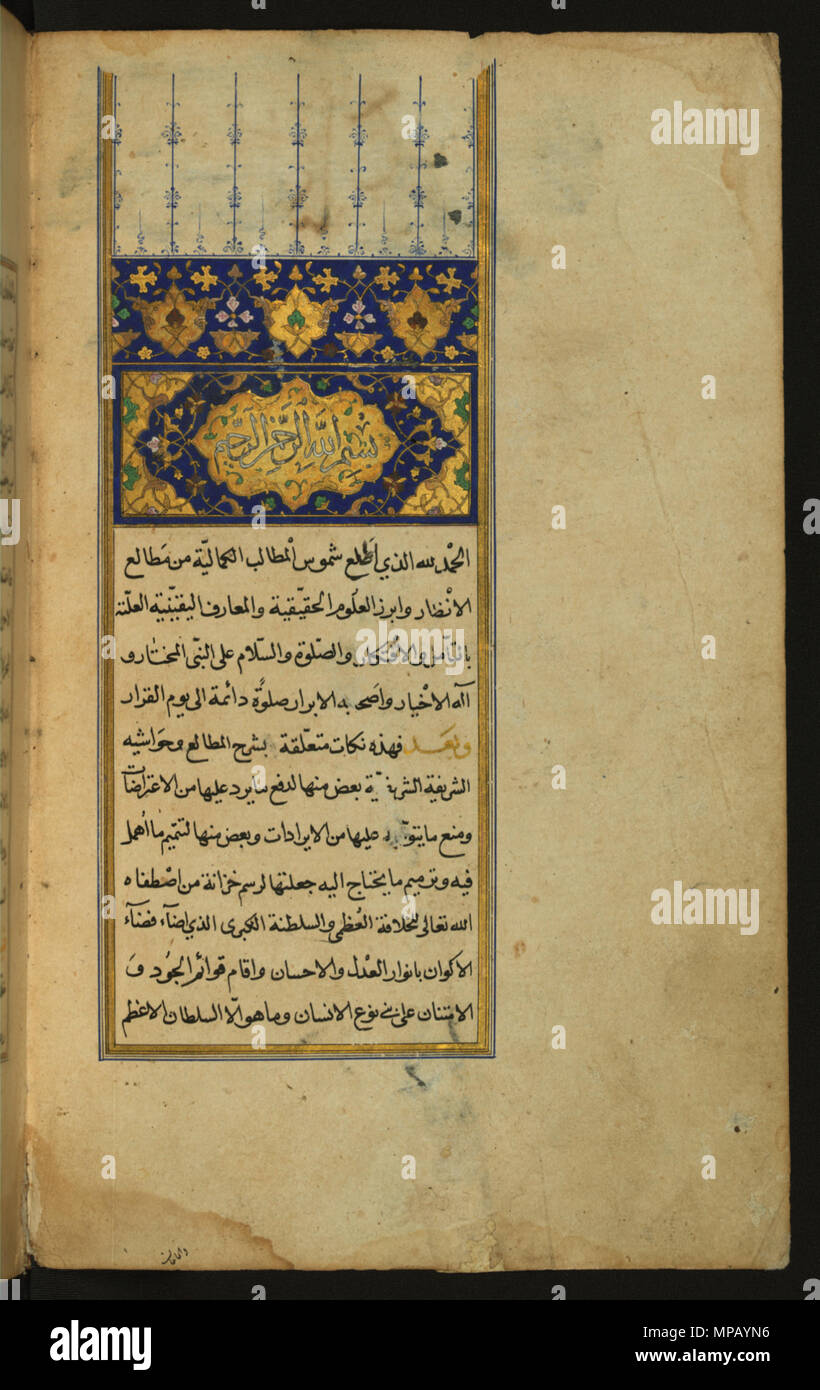 بسم الله الرحمن الرحيم
الحمد لله الذي اطلع شموس المطالب الكمالية من مطالع
الانظار وابرز العلوم الحقيقية والمعارف اليقينية
بالتأمل والافكار والصلوة والسلام على النبي المختار و
آله الاخيار واصحابه الابرار صلوة دائمة الى يوم القرار
وبعد فهذه نكات متعلقة بشرح المطالع وحواشيه
الشريفة الشريفية بعض منها لدفع ما يرد عليها من الاعتراضات
ومنع ما يتوجه عليها من الايرادات وبعض منها لتتميم ما اهمل
فيه وترميم ما يحتاج اليه جعلتها لرسم خزانة من اصطفاه
الله تعالى للخلافة العظمى والسلطنة الكبرى الذي اضاء فضاء
الاكوان بانوار العدل والاحسان واقام قوائم الجود و
الامتنان على بني نوع الانسان وما هو الا السلطان الاعظم
alamy
alamy stock photo
MPAYN6
www.alamy.com